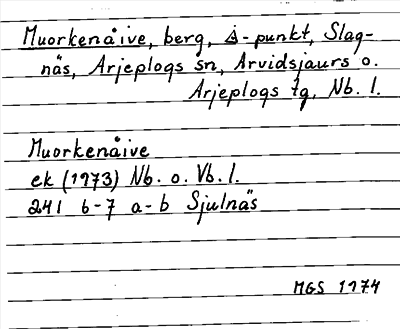 Muorkenåive, berg, △-punkt, Slag-
näs, Arjeplogs sn, Arvidsjaurs o.
Arjeplogs tg, Nb. l.
Muorkenåive
ek (1973) Nb. o. Vb. l.
241 6-7 a-b Sjulnäs
MGS 1974